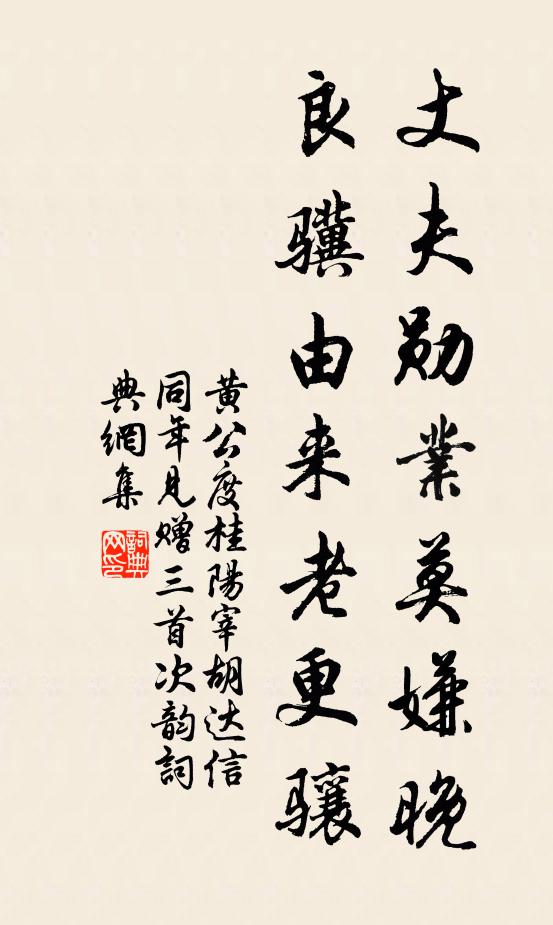 丈夫勋业莫嫌晚
良骥由来老更骧
黄公度桂陽宰胡达信
同年見赠三首次韵詞
典網集
詞典网印